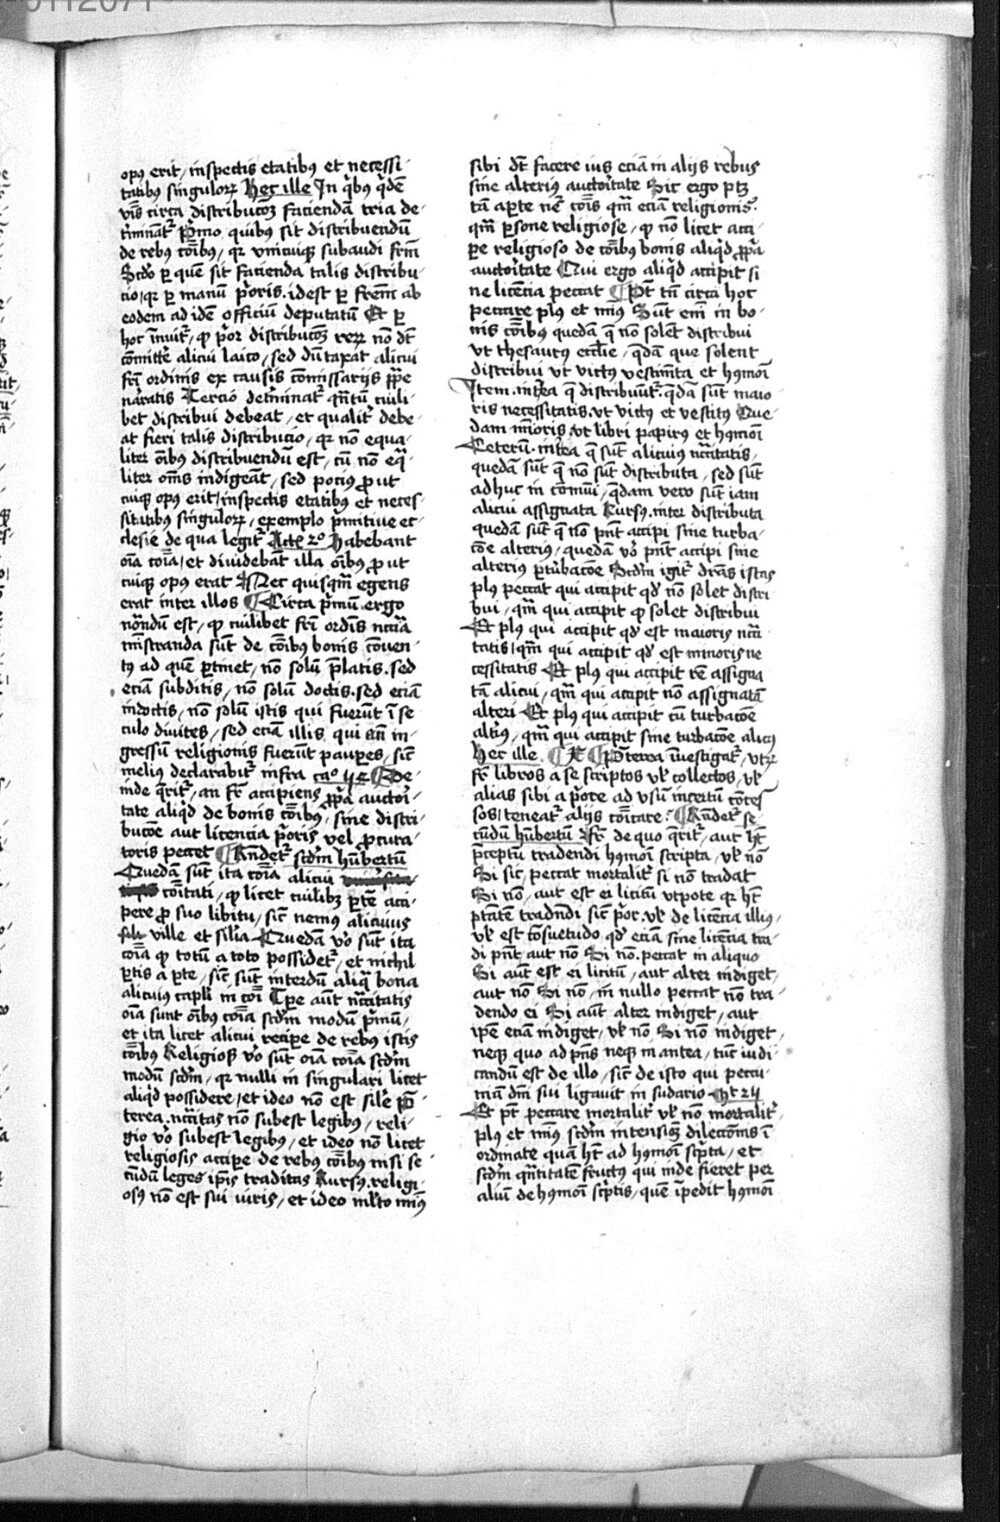 opus erit / inspectis etatibus et necessi-
tatibus singulorꝝ Hec ille In qͥbus qͥdē
v̄bis circa distribucōꝫ faciendā tria de-
t̄minātr̄ Pͥmo quibus sit distribuendū
de rebus cōībus / qꝛ vnicuiqꝫ subaudi frm̄
Scd̄o ꝑ quē sit facienda talis distribu-
cio / qꝛ ꝑ manū pͥoris . idest ꝑ frem̄ ab
eodem ad idē officiū deputatū Et ꝑ
hoc īnuitr̄ / ꝙ pͥor distribucōꝫ reꝝ nō dt̄
cōmittē alicui laico / sed dūtaxat alicui
frī ordinis ex causis cōmissarijs ꝓpe
narratis Tercio det̄minatr̄ qn̄tū cuili-
bet distribui debeat / et qualitr̄ debe-
at fieri talis distribucio / qꝛ nō equa-
liter oībus distribuendū est / cū nō eq̄-
liter om̄s indigeāt / sed pocius ꝓut
cuiqꝫ opus erit / inspectis etatibus et neces-
sitatibus singulorꝝ / exemplo pͥmitiue ec-
clesie de qua legitr̄ Actꝫ 2º Habebant
oīa cōīa / et diuidebāt illa oībus ꝓut
cuiqꝫ opus erat Nec quisqm̄ egens
erat inter illos ¶ Circa pͥmū . ergo
notandū est / ꝙ cuilibet frī ordīs nccīa
mīstranda sūt de cōībus bonis cōuen-
tus ad quē ꝑtinet / nō solū p̄latis . sed
eciā subditis / nō solū doctis . sed eciā
indoctis / nō solū istis qui fuerūt ī se-
culo diuites / sed eciā illis qui an̄ in-
gressum religionis fuerūt pauꝑes / sic̄
melius declarabitr̄ infra caº ¶ De-
inde q̄ritr̄ / an fr̄ accipiens ꝓpͥa auctori-
tate aliqͥd de bonis cōībus / sine distri-
bucōe aut licencia pͥoris vel ꝓcura-
toris peccet ¶ Rn̄detr̄ scd̄m hūbertū
Quedā sūt ita cōīa alicui
cōītati / ꝙ licet cuilibꝫ ꝑtē acci-
pere ꝓ suo libitu / sic̄ nemus alicuius
ville et silia Quedā vͦo sūt ita
cōīa ꝙ totū a toto possidetr̄ / et nichil
ꝑtis a ꝑte / sic̄ sūt interdū aliq̄ bona
alicuius capli in cōī Tꝑe aūt nccitatis
oīa sunt oībus cōīa scd̄m modū pͥmū /
et ita licet alicui recipe de rebus istis
cōībus Religiosis vͦo sūt oīa cōīa scd̄m
modū scd̄m / qꝛ nulli in singulari licet
aliqͥd possidere / et ideo nō est sil̄e p̄-
terea . nccitas nō subest legibus / reli-
gio vͦo subest legibus / et ideo nō licet
religiosis accipe de rebus cōībus nisi se-
cūdū leges ip̄is traditas Rursꝰ . religi-
osus nō est sui iuris / et ideo ml̄to minꝰ
sibi dt̄ facere ius eciā in alijs rebus
sine alterius auctoritate Sic ergo ptꝫ
tā a ꝑte rei cōīs qm̄ eciā religionis .
qm̄ ꝑsone religiose / ꝙ nō licet acci-
ꝑe religioso de cōībus bonis aliqͥd ꝓpͥa
auctoritate Qui ergo aliqͥd accipit si-
ne licēcia peccat ¶ Pt̄ tn̄ circa hoc
peccare plus et minus Sūt eni in bo-
nis cōībus quedam q̄ nō solēt distribui
vt thesaurus ecclie / q̄dam que solent
distribui vt victus vestimēta et hꝰmōi
Item . inter ea q̄ distribuūtr̄ . q̄dā sūt maio-
ris necessitatis . vt victus et vestitus Que-
dam minoris . vt libri papirus et hꝰmōi
Ceterū . inter ea q̄ sūt alicuius nccitatis /
quedā sūt q̄ nō sūt distributa / sed sūt
adhuc in cōmuni / q̄dam vero sūt iam
alicui assignata Rursꝰ . inter distributa
quedā sūt q̄ nō pn̄t accipi sine turba-
cōe alterius / quedā vͦo pn̄t accipi sine
alterius ꝑturbacōe Scd̄m igitr̄ dr̄ias istas
plus peccat qui accipit qd̄ nō solet distri-
bui / qm̄ qui accipit ꝙ solet distribui
Et plus qui accipit qd̄ est maioris ncci-
tatis / qm̄ qui accipit qd̄ est minoris ne-
cessitatis Et plus qui accipit rē assigna-
tā alicui / qm̄ qui accipit nō assignatā
alteri Et plus qui accipit cū turbacōe
altius / qm̄ qui accipit sine turbacōe alicꝰ
Hec ille . ¶ ¶ Pret̄ea inuestigatr̄ / vtꝝ
fr̄ libros a se scriptos vl̓ collectos / vl̓
alias sibi a pͥore ad vsū incertū cōces-
sos / teneatr̄ alijs cōīcare : ¶ Rn̄detr̄ se-
cūdū hūbertū Fr̄ de quo q̄ritr̄ / aut ht̄
p̄ceptū tradendi hꝰmōi scripta / vl̓ nō
Si sic / peccat mortalitr̄ si nō tradat
Si nō / aut est ei licitū vtpote qꝛ ht̄
ptātē tradendi sic̄ pͥor . vl̓ de licēcia illius /
vl̓ est cōsuetudo qd̄ eciā sine licēcia tra-
di pn̄t aut nō Si nō . peccat in aliquo
Si aūt est ei licitū / aut alter indiget /
aut nō Si nō / in nullo peccat nō tra-
dendo ei Si aūt alter indiget / aut
ip̄e eciā indiget / vl̓ nō Si nō indiget /
neqꝫ quo ad pn̄s neqꝫ in antea / tūc iudi-
candū est de illo / sic̄ de isto qui pecu-
niā dn̄i sui ligauit in sudario
Et pt̄ peccare mortalitr̄ vl̓ nō mortalitr̄
plus et minus scd̄m intensiōꝫ dilectōnis ī-
ordinate quā ht̄ ad hꝰmōi scpͥta / et
scd̄m qn̄titatē fructus qui inde fieret per
aliū de hꝰmōi scpͥtis / quē īpedit hꝰmōi